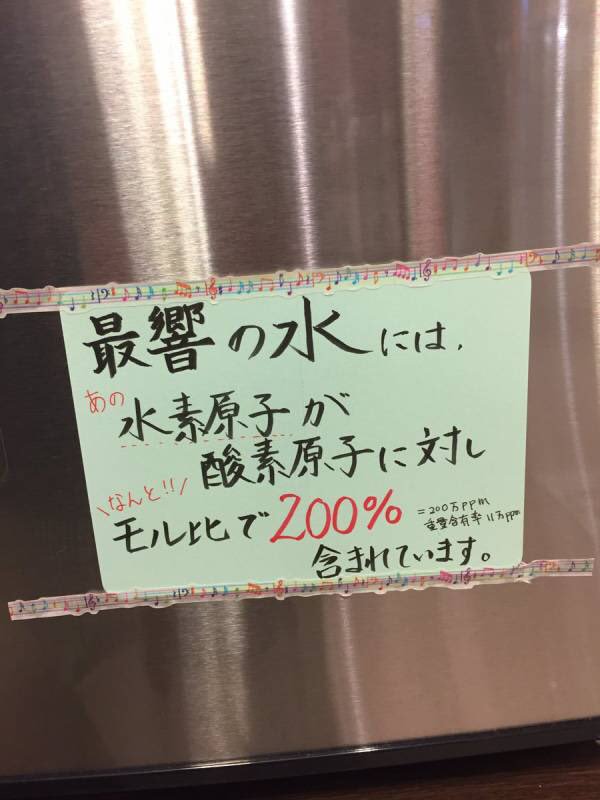 最響の水には,
あの
水素原子が
酸素原子に対し
\なんと!!/
モル比で200%
=200万ppm
重量含有率11万ppm
含まれています。